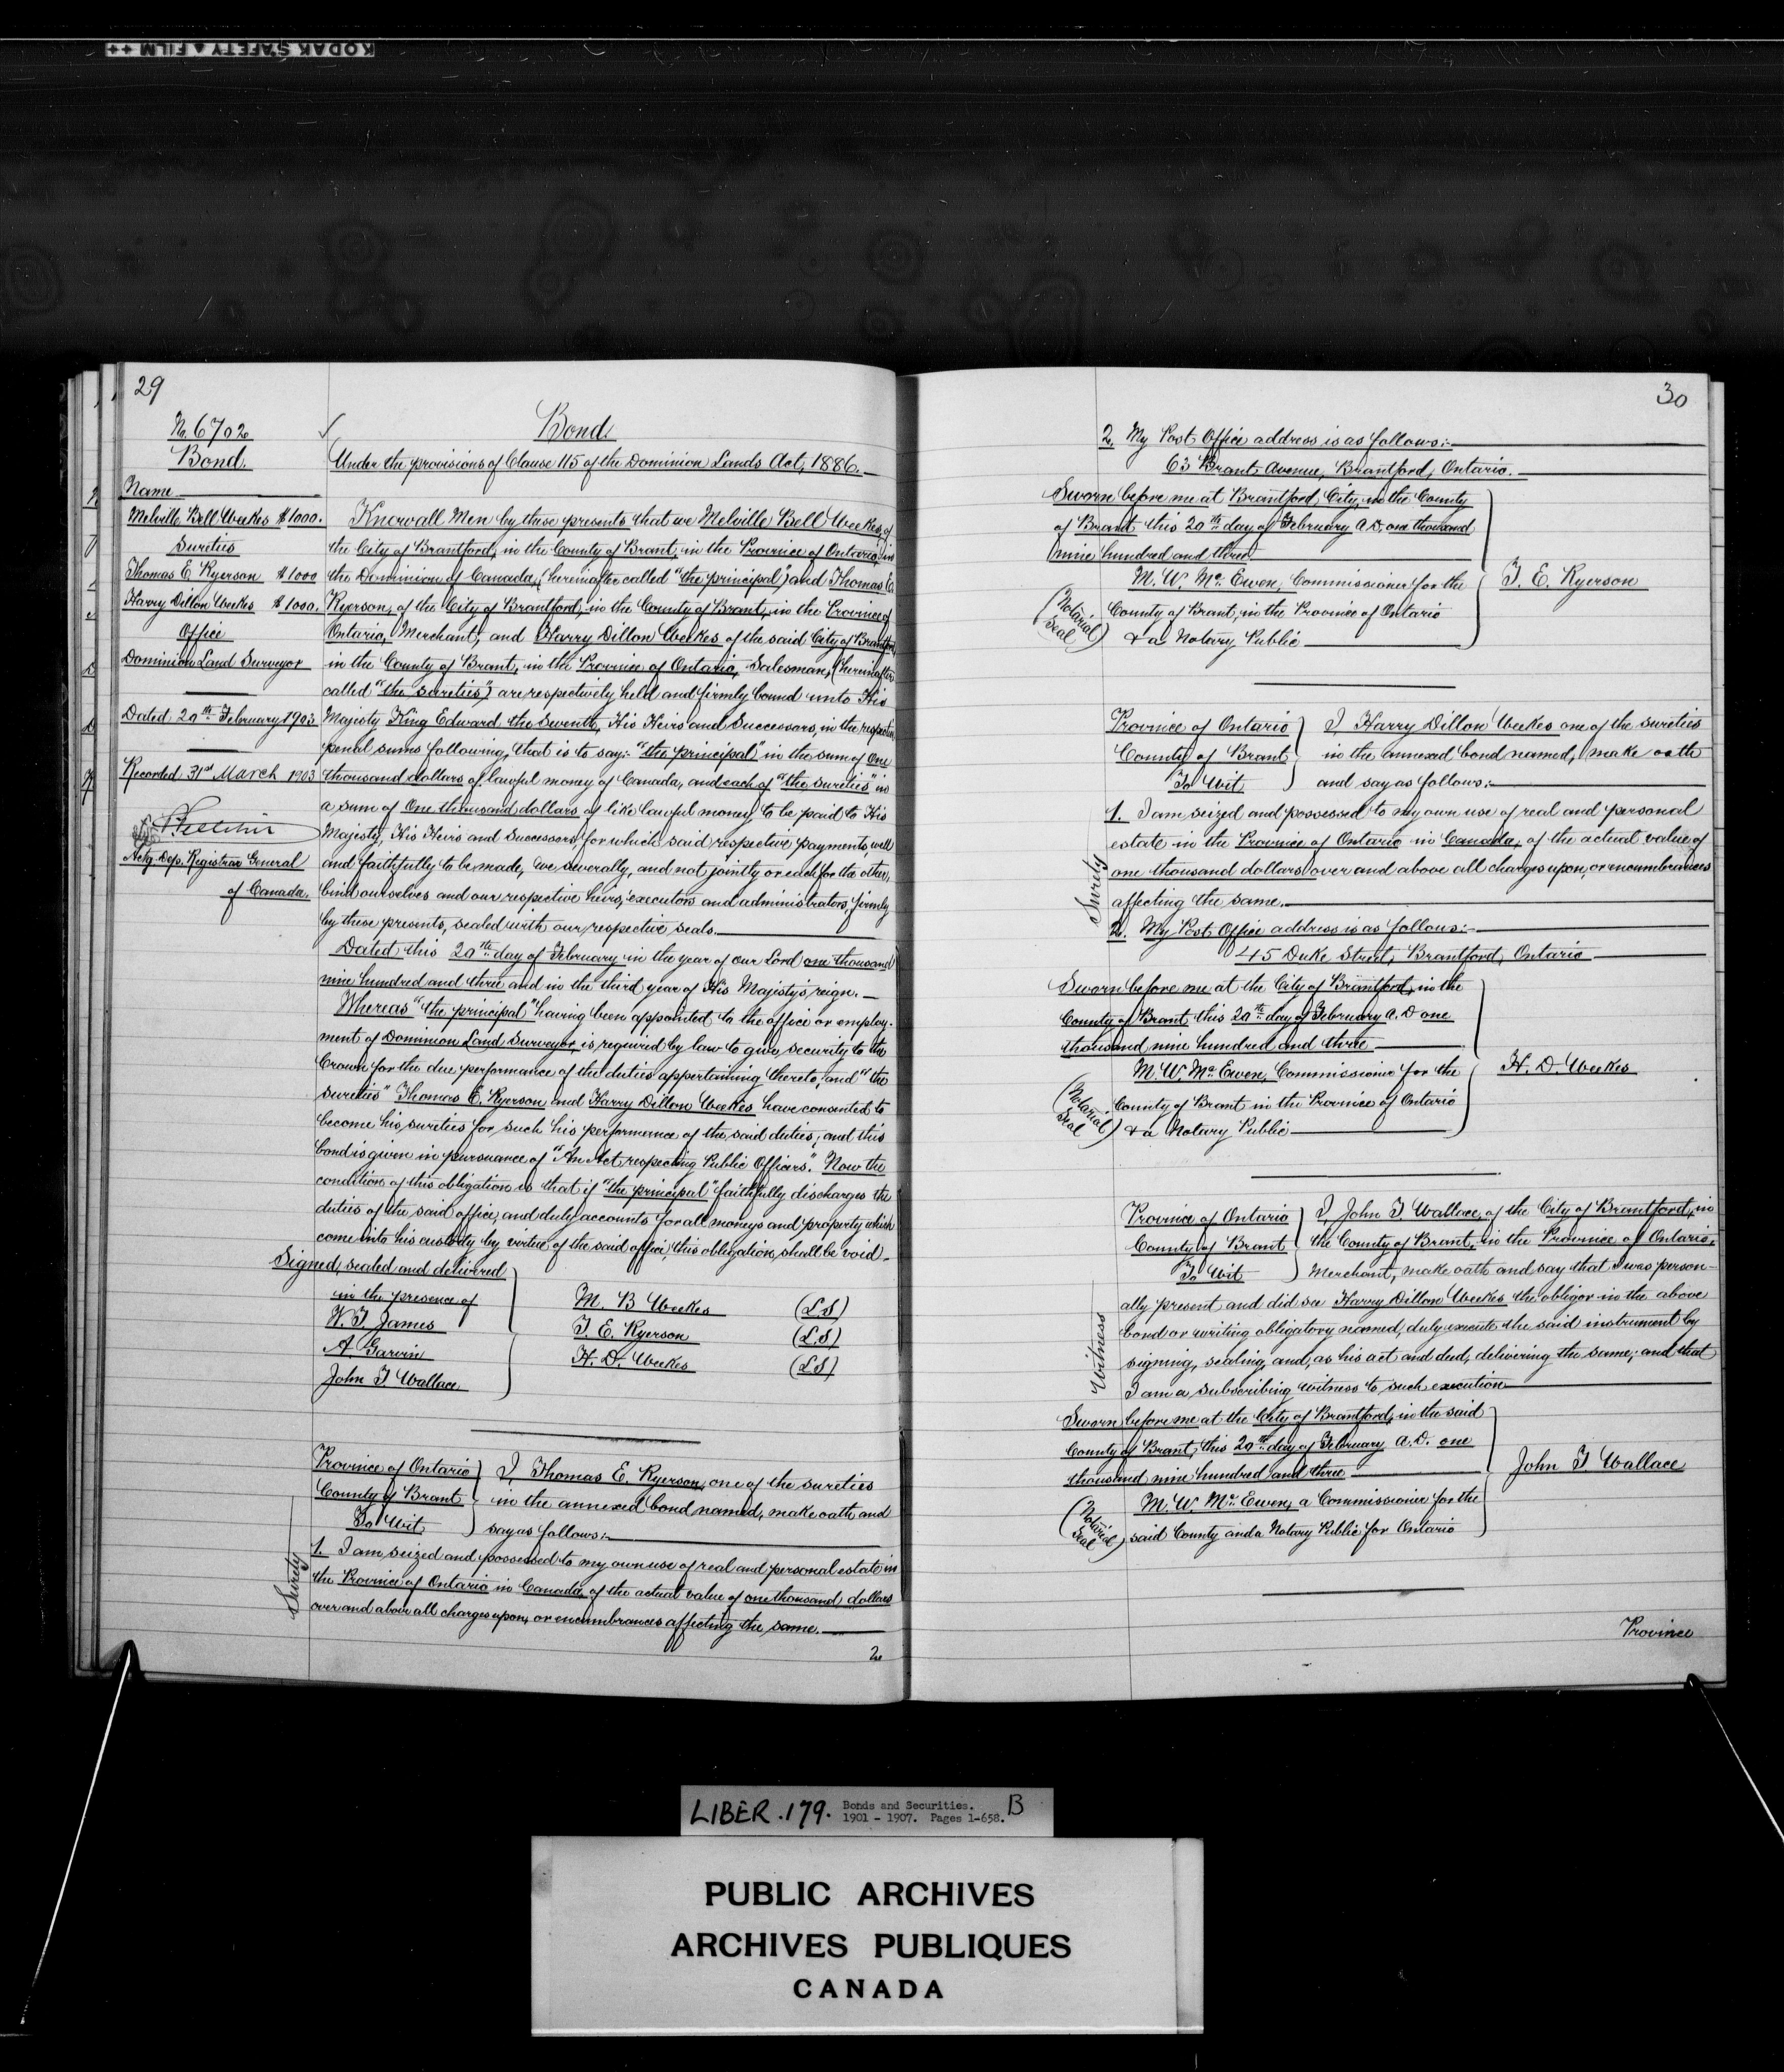 KODAK SAFETY FILM ++
29
No. 6702
Bond
Name
Melville Bell Weekes $1000.
Sureties
Thomas E Ryerson $1000
Harry Dillon Weekes $1000.
Office
Dominion Land Surveyor
Dated 20th February 1903
Recorded 31st March 1903
Actg. Dep. Registrar General
of Canada.
Bond
Under the provisions of Clause 115 of the Dominion Lands Act, 1886.
Know all Men by these presents that we Melville Bell Weekes, of
the City of Brantford, in the County of Brant, in the Province of Ontario, in
the Dominion of Canada, (hereinafter called "the principal") and Thomas E.
Ryerson, of the City of Brantford, in the County of Brant, in the Province of
Ontario, Merchant, and Harry Dillon Weekes of the said City of Brantford,
in the County of Brant, in the Province of Ontario, Salesman, (hereinafter
called "the sureties") are respectively held and firmly bound unto His
Majesty King Edward the Seventh, His Heirs and Successors, in the respective
penal sums following, that is to say:- "the principal" in the sum of One
thousand dollars of lawful money of Canada, and each of "the sureties" in
a sum of One thousand dollars of like lawful money, to be paid to His
Majesty, His Heirs and Successors, for which said respective payments, well
and faithfully to be made, we severally, and not jointly or each for the other,
bind ourselves and our respective heirs, executors and administrators, firmly
by these presents, sealed with our respective seals.
Dated this 20th day of February in the year of our Lord one thousand
nine hundred and three and in the third year of His Majesty's reign.
Whereas "the principal" having been appointed to the office or employ-
ment of Dominion Land Surveyor, is required by law to give security to the
Crown for the due performance of the duties appertaining thereto, and "the
sureties" Thomas E. Ryerson and Harry Dillon Weekes have consented to
become his sureties for such his performance of the said duties; and this
bond is given in pursuance of "An Act respecting Public Officers." Now the
condition of this obligation is that if "the principal" faithfully discharges the
duties of the said office, and duly accounts for all moneys and property which
come into his custody by virtue of the said office, this obligation shall be void.
Signed, sealed and delivered
in the presence of
W. T. James
A. Garvin
John T. Wallace
M. B Weekes (L.S)
T. E. Ryerson (L.S)
H. D. Weekes (L.S)
Province of Ontario
County of Brant
To Wit
I, Thomas E. Ryerson, one of the sureties
in the annexed bond named, make oath and
say as follows:-
Surety
1. I am seized and possessed to my own use of real and personal estate in
the Province of Ontario in Canada, of the actual value of one thousand dollars
over and above all charges upon, or encumbrances affecting the same.
2
30
2. My Post Office address is as follows:-
63 Brant Avenue, Brantford, Ontario.
Sworn before me at Brantford City, in the County
of Brant this 20th day of February A.D. one thousand
nine hundred and three
M. W. McEwen, Commissioner for the
County of Brant, in the Province of Ontario
& a Notary Public
(Notarial Seal)
T. E. Ryerson
Province of Ontario
County of Brant
To Wit
I, Harry Dillon Weekes one of the sureties
in the annexed bond named, make oath
and say as follows:-
Surety
1. I am seized and possessed to my own use of real and personal
estate in the Province of Ontario in Canada, of the actual value of
one thousand dollars over and above all charges upon, or encumbrances
affecting the same.
2. My Post Office address is as follows:-
45 Duke Street, Brantford, Ontario
Sworn before me at the City of Brantford, in the
County of Brant this 20th day of February A.D one
thousand nine hundred and three
M. W. McEwen, Commissioner for the
County of Brant in the Province of Ontario
& a Notary Public
(Notarial Seal)
H. D. Weekes
Province of Ontario
County of Brant
To Wit
I, John T. Wallace, of the City of Brantford, in
the County of Brant, in the Province of Ontario,
Merchant, make oath and say that I was person-
Witness
ally present and did see Harry Dillon Weekes the obligor in the above
bond or writing obligatory named, duly execute the said instrument by
signing, sealing, and, as his act and deed, delivering the same; and that
I am a subscribing witness to such execution
Sworn before me at the City of Brantford, in the said
County of Brant, this 20th day of February A.D. one
thousand nine hundred and three
M. W. McEwen, a Commissioner for the
said County and a Notary Public for Ontario
(Notarial Seal)
John T. Wallace
Province
LIBER .179. Bonds and Securities. B
1901 - 1907. Pages 1-658.
PUBLIC ARCHIVES
ARCHIVES PUBLIQUES
CANADA